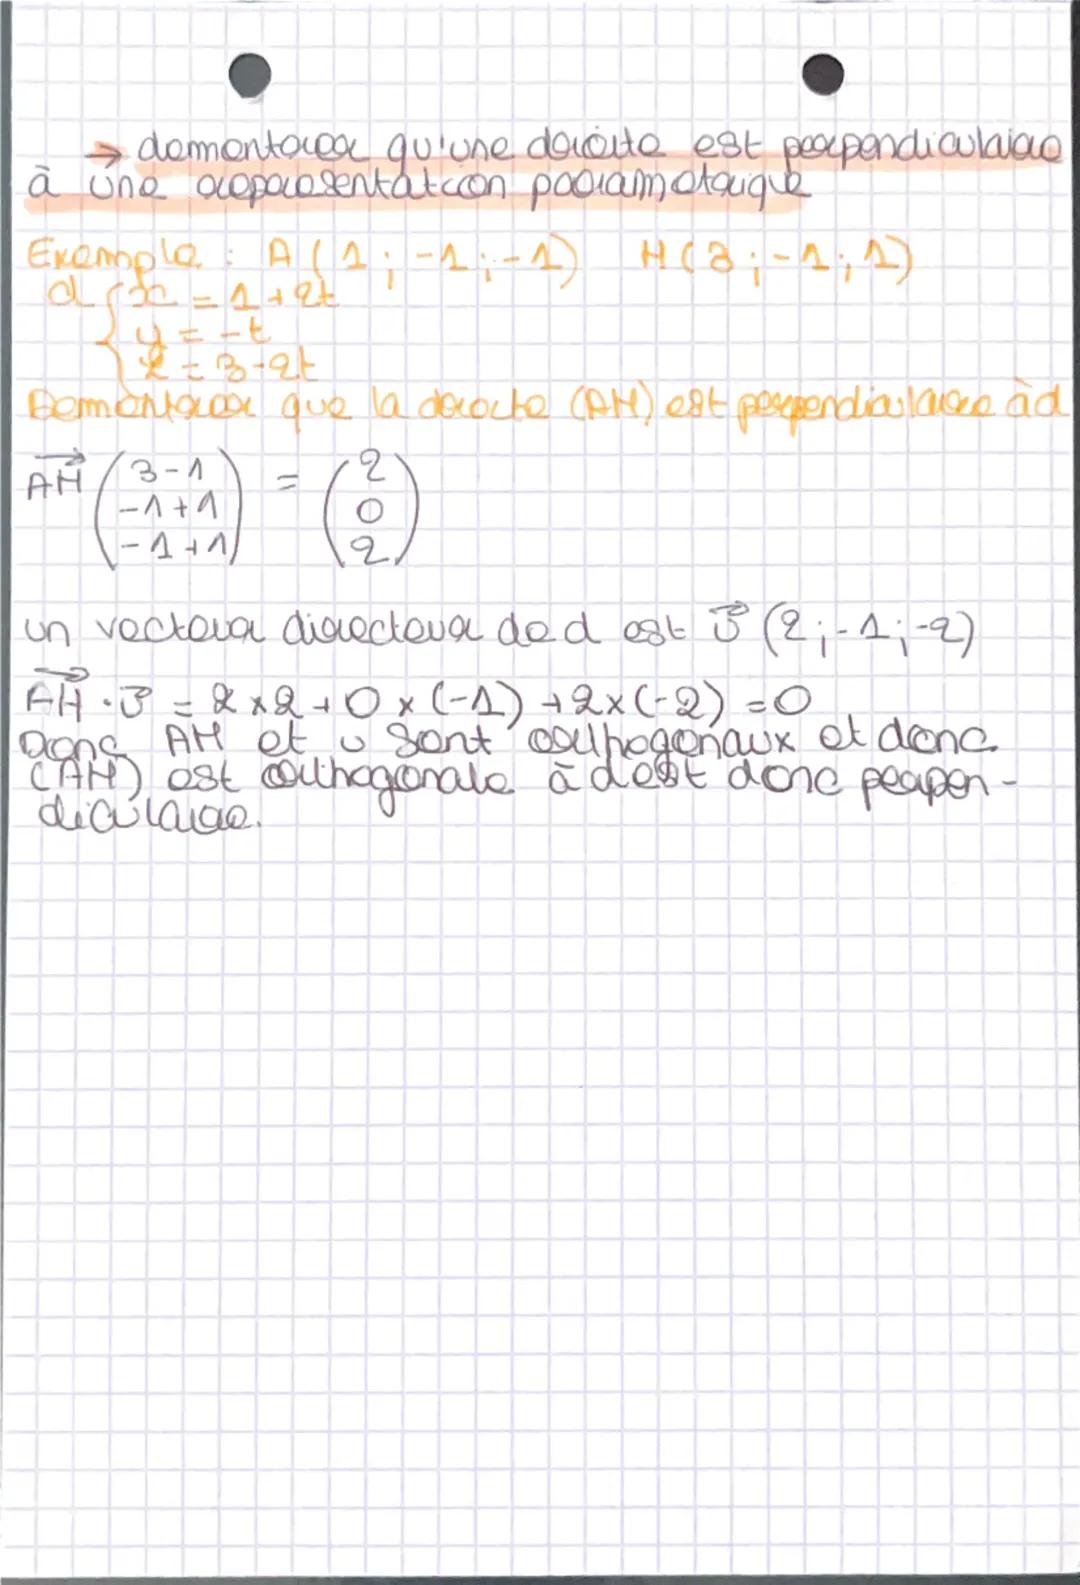 → démontrer qu'une droite est perpendiculaire
à une representation paramétrique
Exemple : A (1 ; -1 ; -1) H (3 ; -1 ; 1)
d { x = 1 + 2t
y = -t
z = 3 - 2t
Démontrer que la droite (AH) est perpendiculaire à d
AH→ ( 3 - 1 ) = ( 2 )
( -1 + 1 ) ( 0 )
( -1 + 1 ) ( 2 )
un vecteur directeur de d est u→ (2 ; -1 ; -2)
AH→ . u→ = 2 × 2 + 0 × (-1) + 2 × (-2) = 0
Donc AH et u sont orthogonaux et donc
(AH) est orthogonale à d est donc perpen-
diculaire.